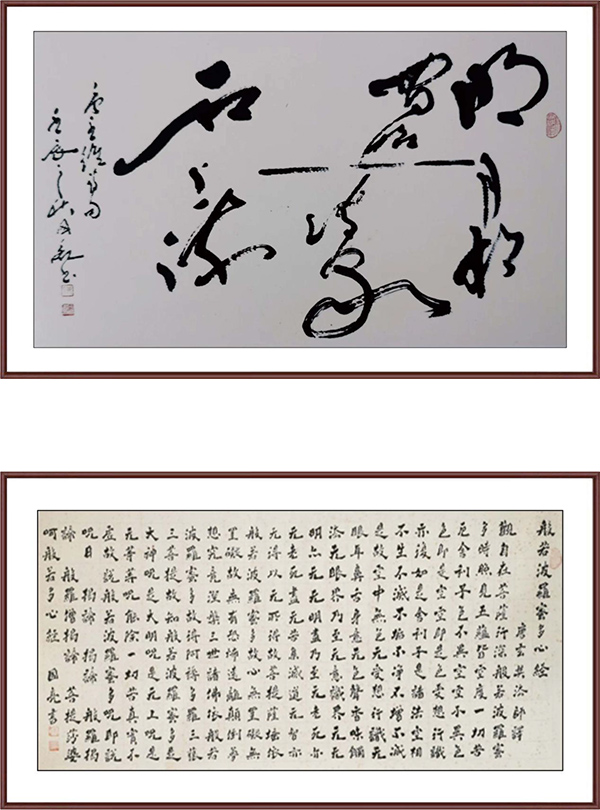 明月松
間照清泉
石上流
唐王維詩句
般若波羅蜜多心經
唐玄奘法師譯
觀自在菩薩行深般若波羅蜜
多時照見五蘊皆空度一切苦
厄舍利子色不異空空不異色
色即是空空即是色受想行識
亦復如是舍利子是諸法空相
不生不滅不垢不淨不增不減
是故空中無色无受想行識无
眼耳鼻舌身意无色聲香味觸
法无眼界乃至无意識界无无
明亦无无明盡乃至无老死亦
无老死盡无苦集滅道无智亦
无得以无所得故菩提薩埵依
般若波羅蜜多故心無罣礙無
罣礙故無有恐怖遠離顛倒夢
想究竟涅槃三世諸佛依般若
波羅蜜多故得阿耨多羅三藐
三菩提故知般若波羅蜜多是
大神咒是大明咒是无上咒是
无等等咒能除一切苦真實不
虛故說般若波羅蜜多咒即說
咒曰 揭諦 揭諦 般羅揭
諦 般羅僧揭諦 菩提莎婆
呵般若多心經 国亮書